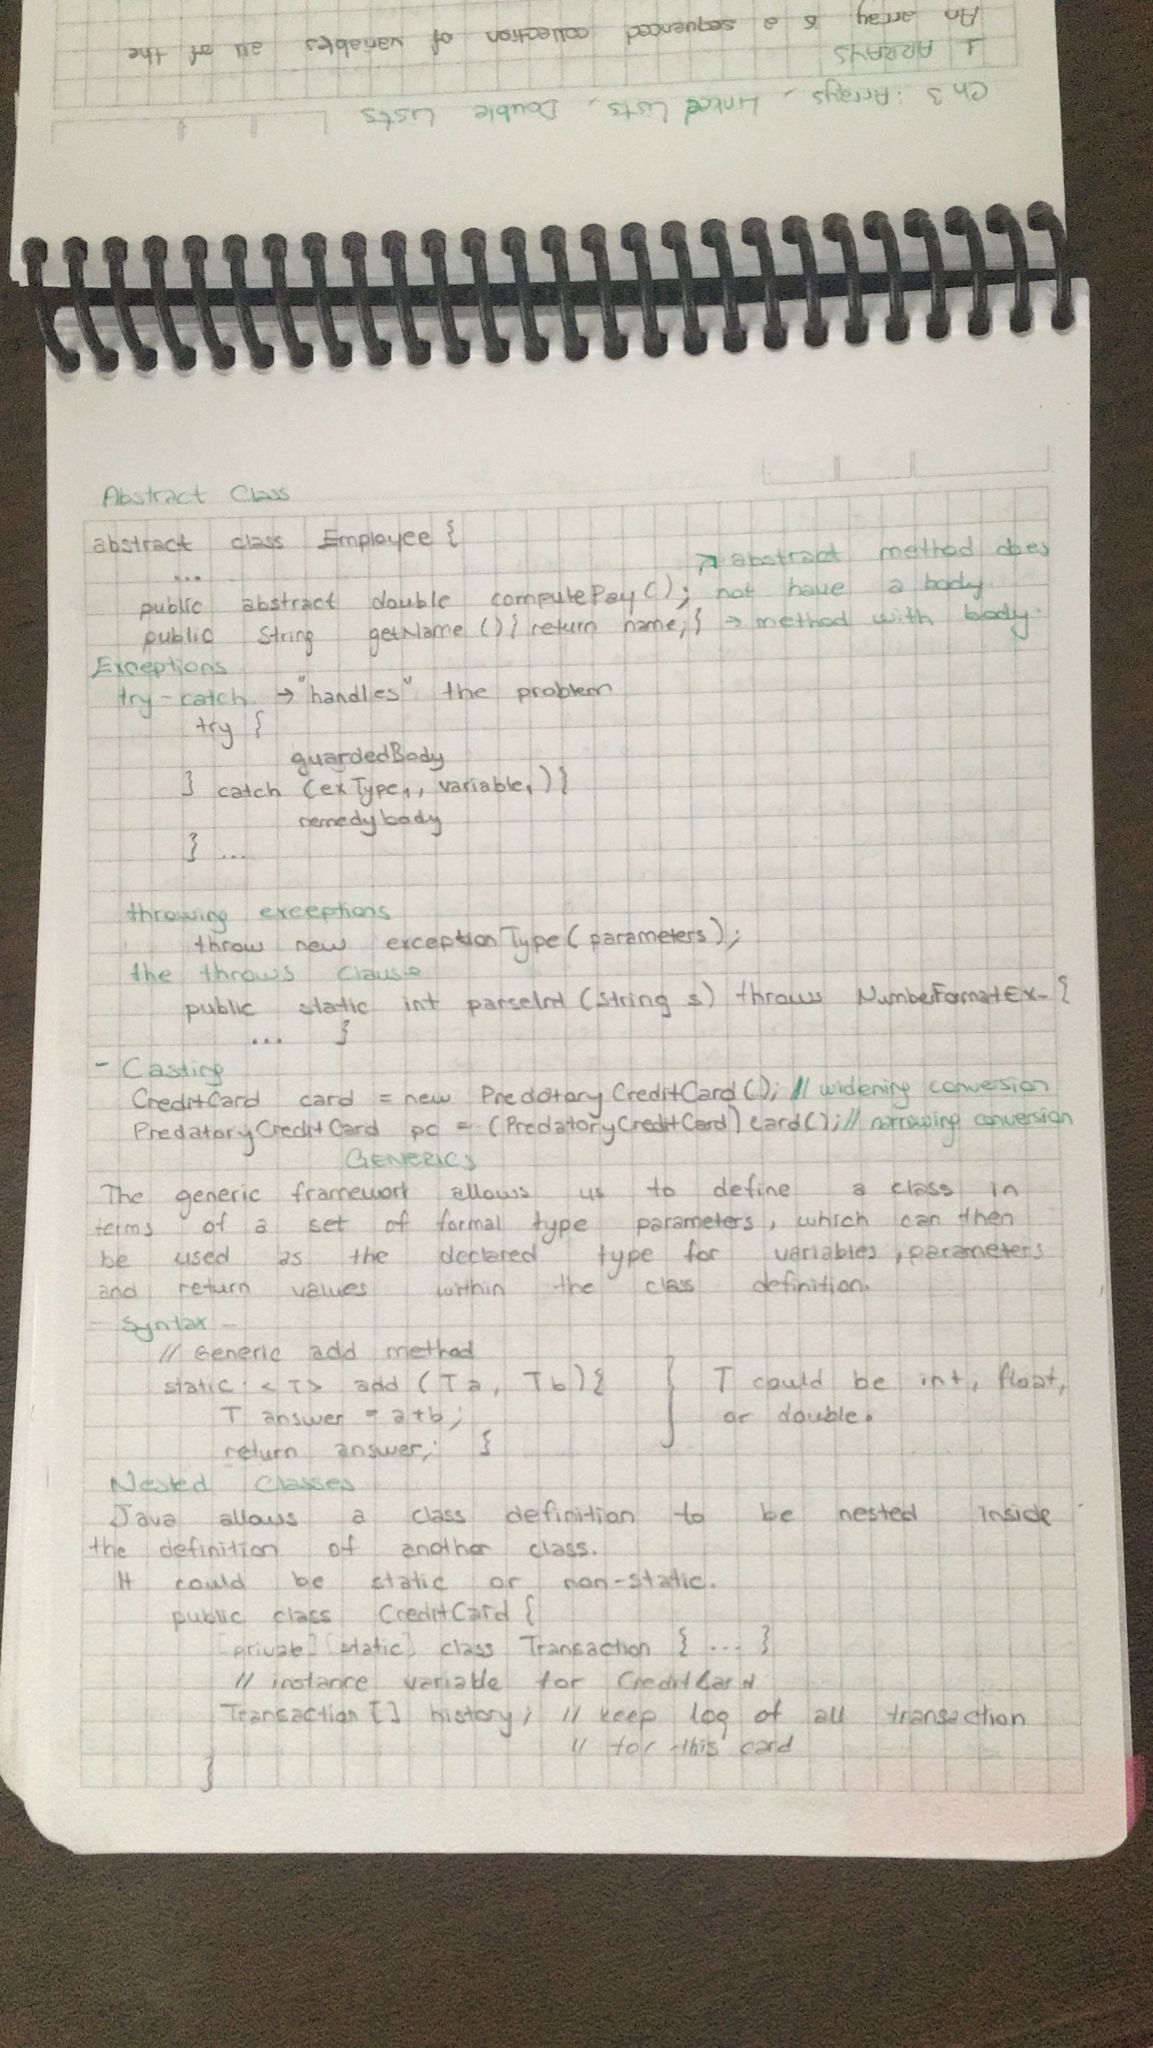 An array is a sequenced collection of variables all of the
1 ARRAYS
Ch 3: Arrays, Linked Lists, Double Lists
Abstract Class
abstract class Employee {
...
↗ abstract method does
public abstract double computePay(); not have a body
public String getName () { return name; } → method with body.
Exceptions
try-catch → "handles" the problem
try {
guardedBody
} catch (exType1, variable1) {
remedybody
} ...
throwing exceptions
throw new exceptionType(parameters);
the throws Clause
public static int parseInt (String s) throws NumberFormatEx- {
... }
- Casting
CreditCard card = new PredatoryCreditCard(); // widening conversion
PredatoryCreditCard pc = (PredatoryCreditCard) card(); // narrowing conversion
GENERICS
The generic framework allows us to define a class in
terms of a set of formal type parameters, which can then
be used as the declared type for variables, parameters
and return values within the class definition.
- Syntax -
// Generic add method
static <T> add (T a, T b) { } T could be int, float,
T answer = a+b; or double.
return answer; }
Nested Classes
Java allows a class definition to be nested inside
the definition of another class.
It could be static or non-static.
public class CreditCard {
[private] [static] class Transaction { ... }
// instance variable for CreditCard
Transaction [] history; // keep log of all transaction
// for this card
}